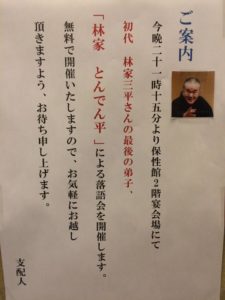 ご案内
今晩二十一時十五分より保性館2階宴会場にて
初代　林家三平さんの最後の弟子、
「林家　とんでん平」による落語会を開催します。
無料で開催いたしますので、お気軽にお越し
頂きますよう、お待ち申し上げます。
支配人